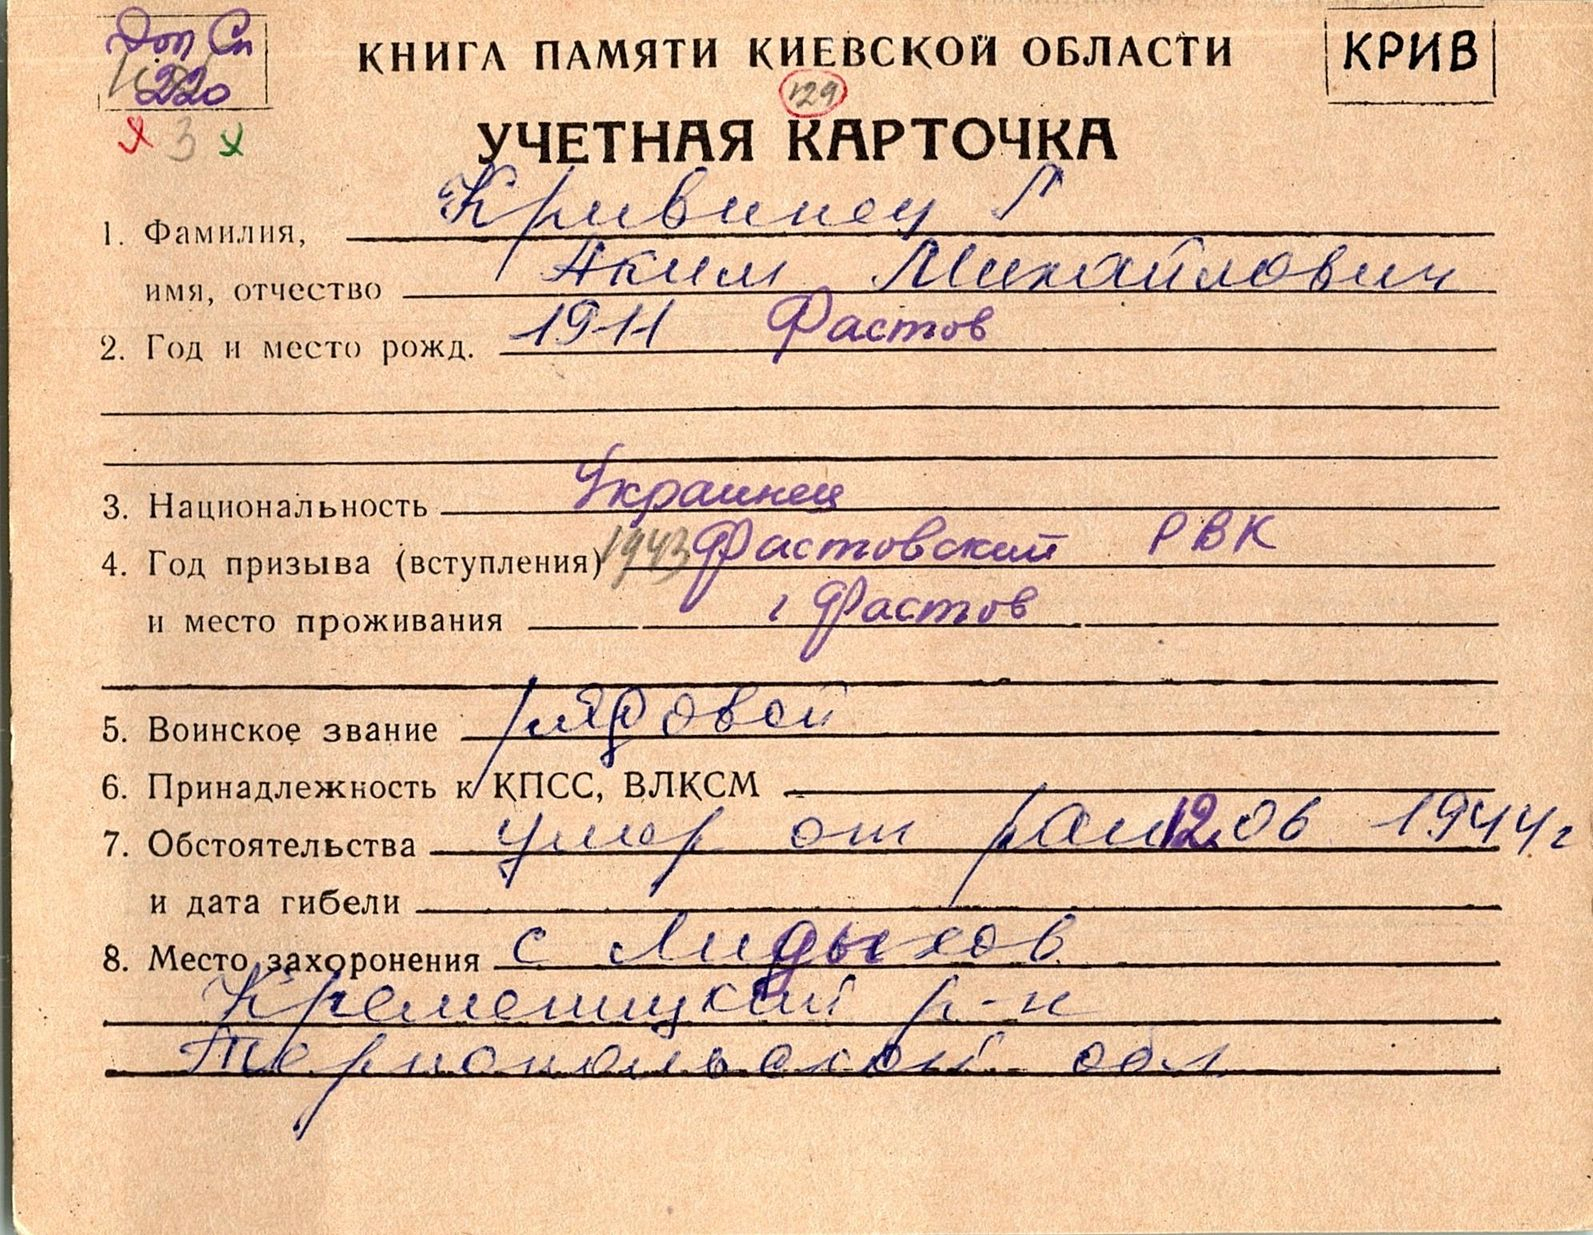 Доп Сп
220
КНИГА ПАМЯТИ КИЕВСКОЙ ОБЛАСТИ
КРИВ
129
УЧЕТНАЯ КАРТОЧКА
3
1. Фамилия, Кривинец
имя, отчество Аким Михайлович
2. Год и место рожд. 1911 Фастов
3. Национальность Украинец
4. Год призыва (вступления) 1943 Фастовский РВК
и место проживания г Фастов
5. Воинское звание рядовой
6. Принадлежность к КПСС, ВЛКСМ
7. Обстоятельства умер от ран 12.06 1944г
и дата гибели
8. Место захоронения с Лидыхов
Кременицкий р-н
Тернопольской обл